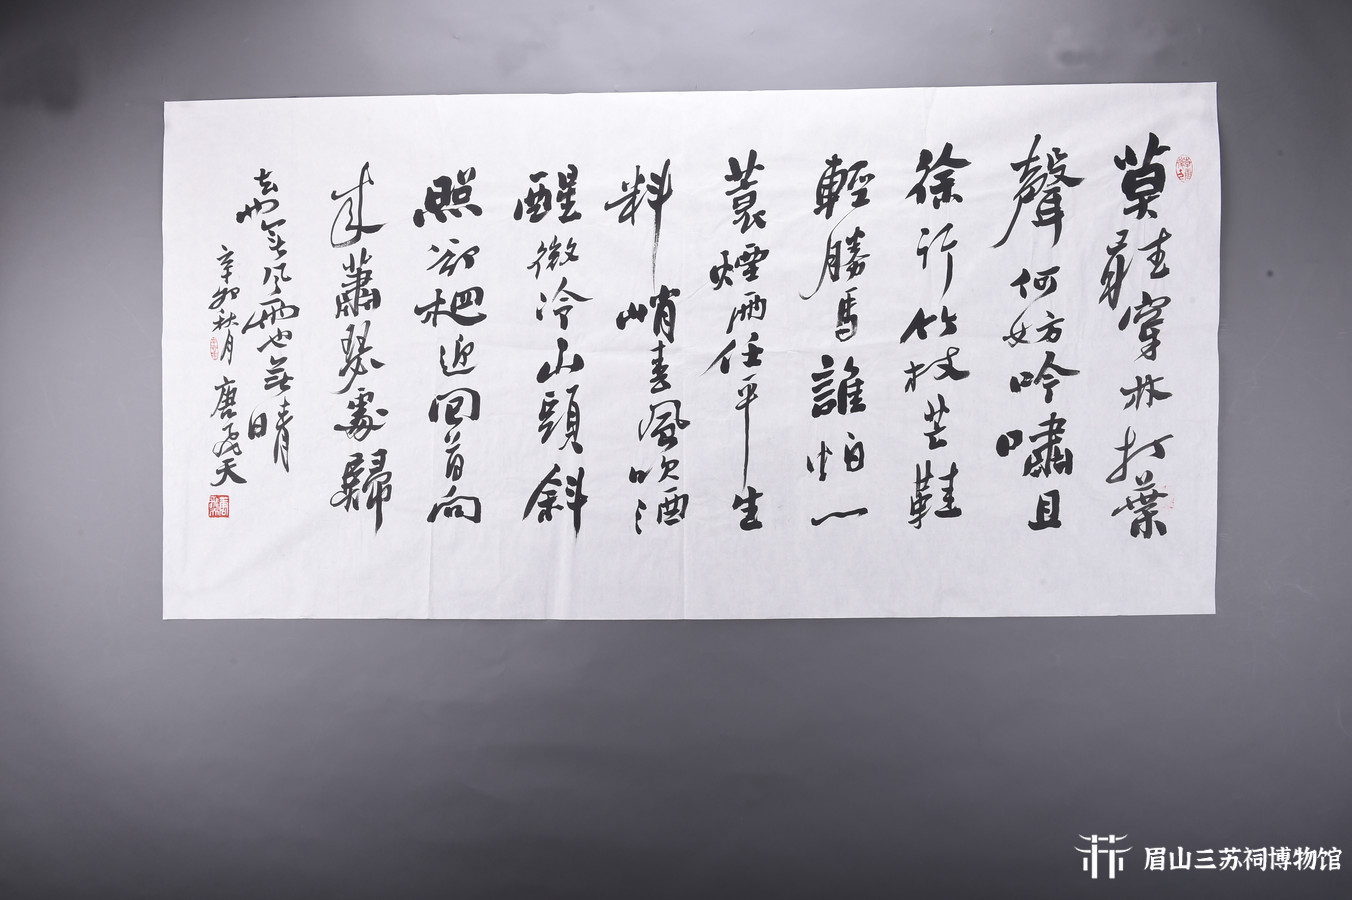 莫聽穿林打葉
聲何妨吟嘯且
徐行竹杖芒鞋
輕勝馬誰怕一
蓑煙雨任平生
料峭春風吹酒
醒微冷山頭斜
照卻相迎回首向
來蕭瑟處歸
去也無風雨也無晴
辛卯秋月 唐天
眉山三苏祠博物馆